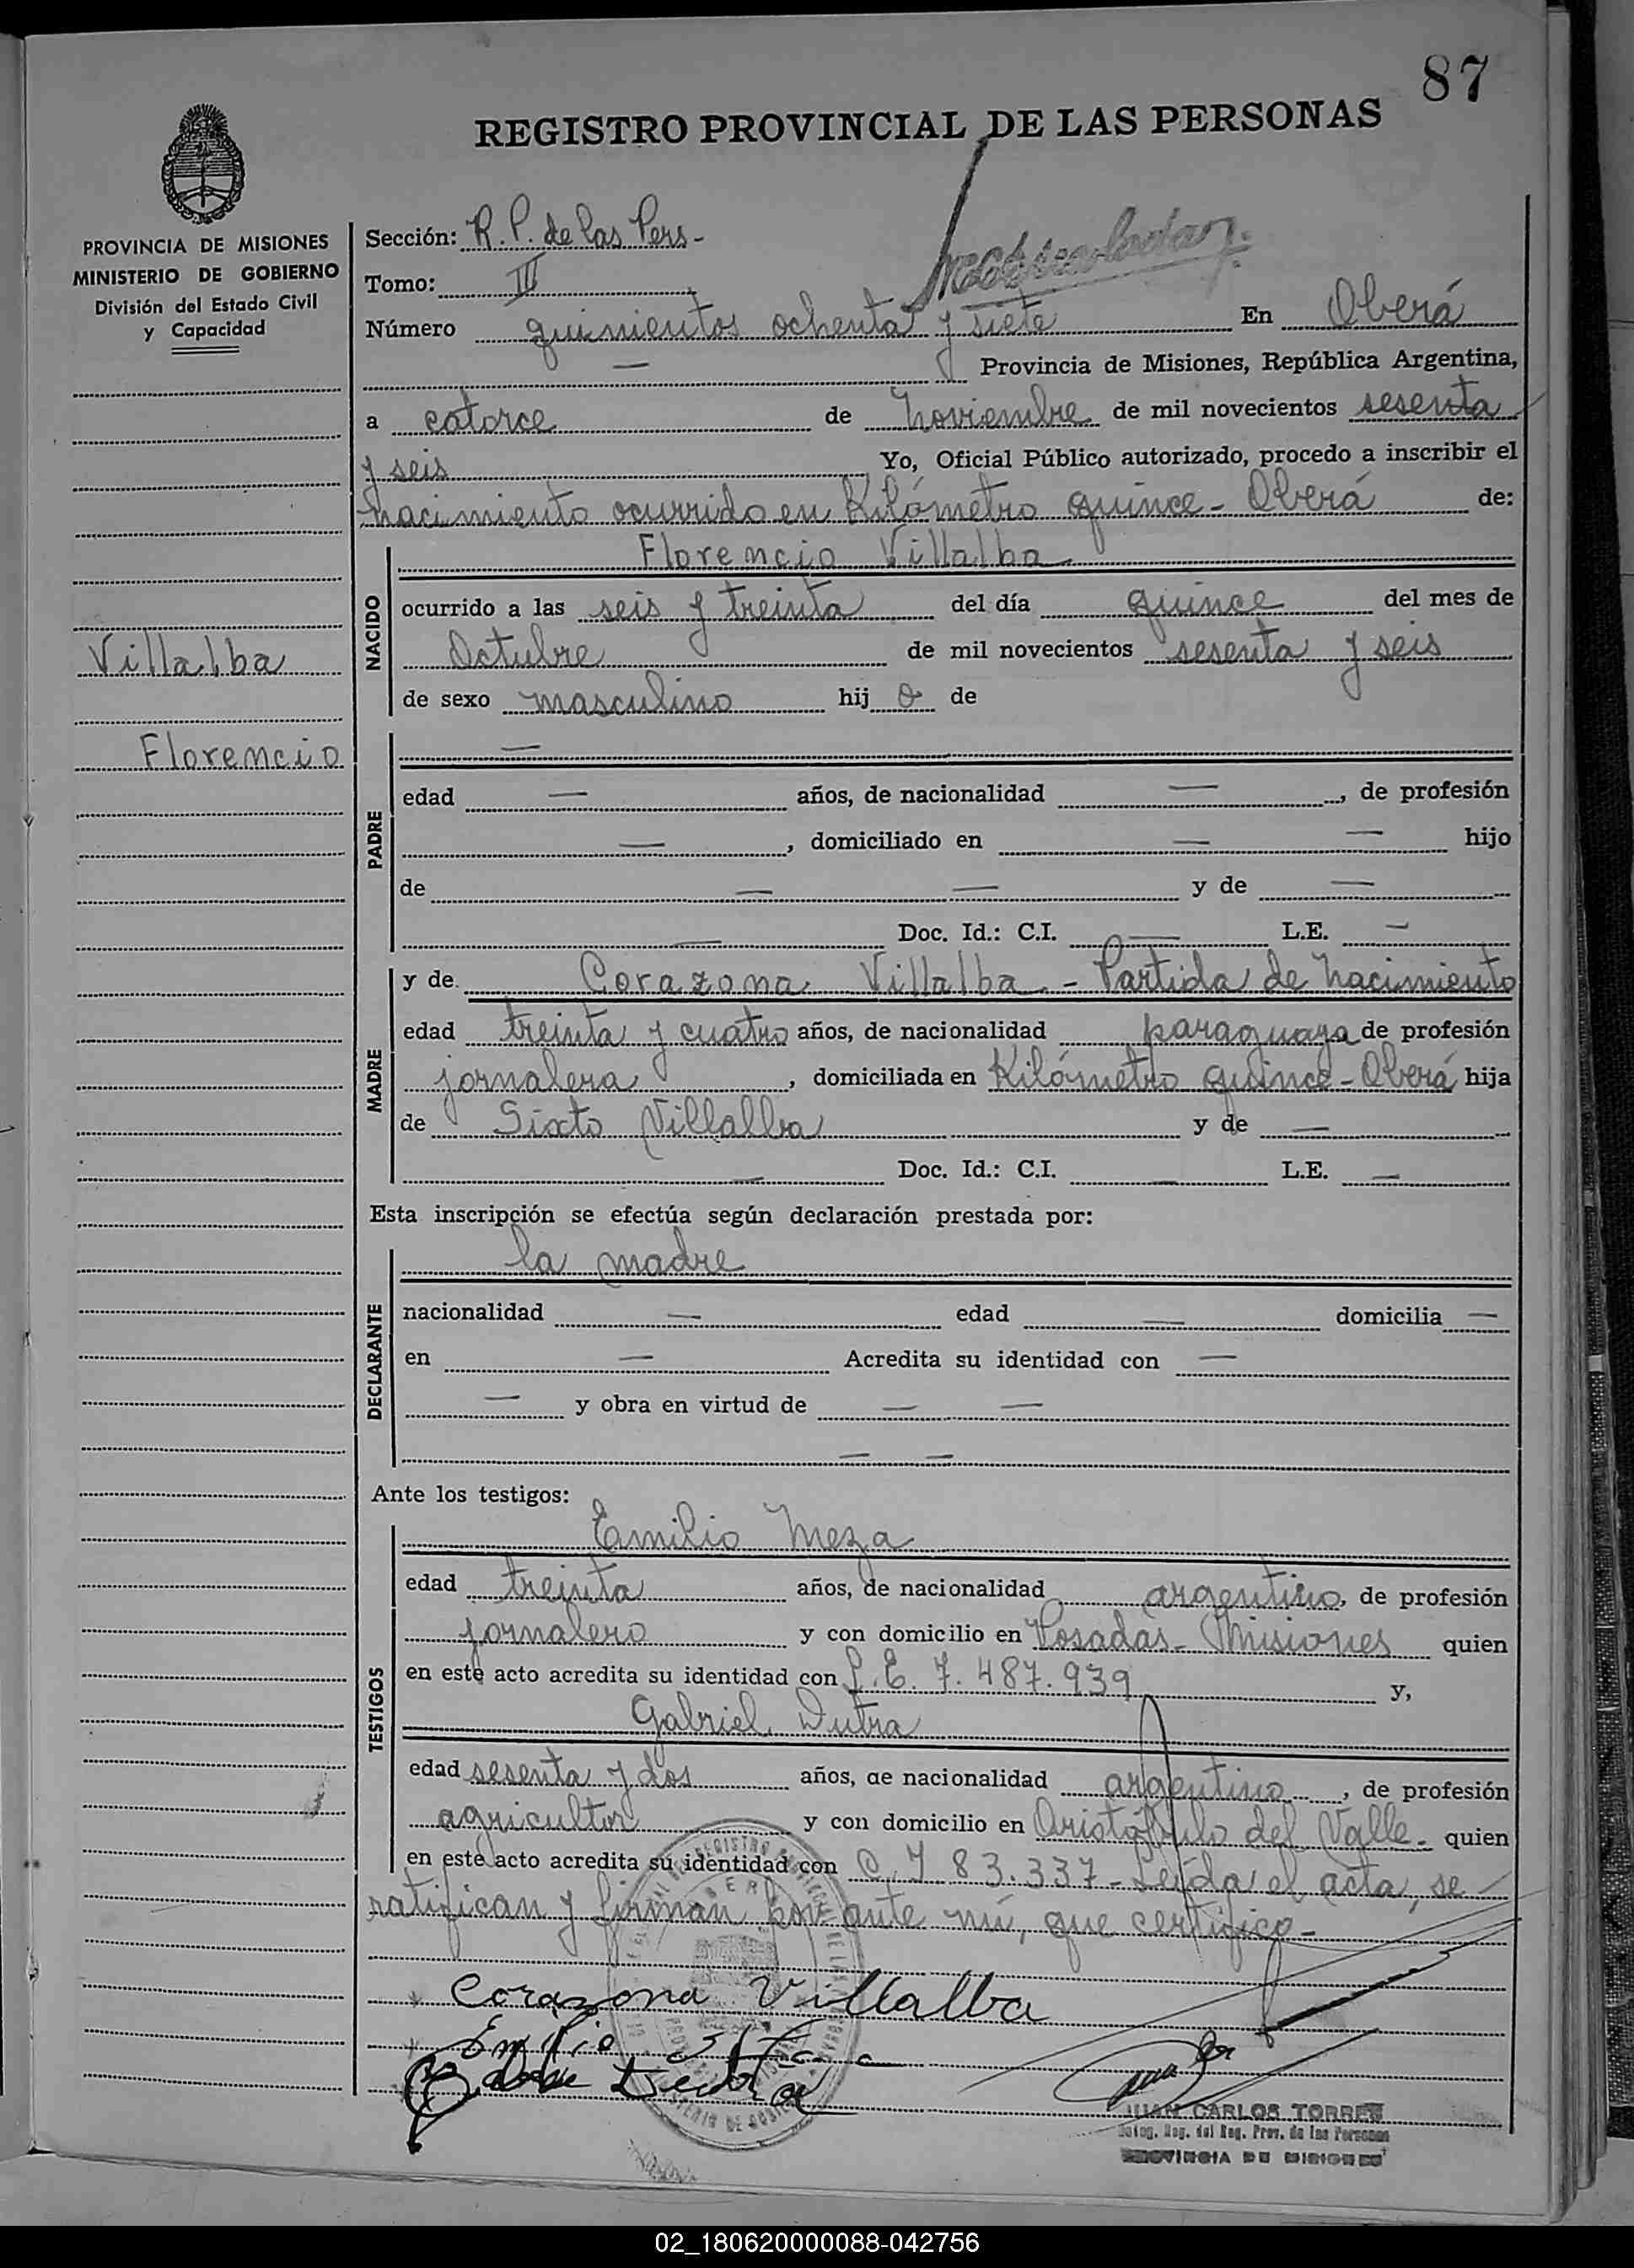 87
REGISTRO PROVINCIAL DE LAS PERSONAS
PROVINCIA DE MISIONES
MINISTERIO DE GOBIERNO
División del Estado Civil
y Capacidad
Villalba
Florencio
Sección: R. P. de las Pers-
Tomo: III
Número quinientos ochenta y siete En Oberá
— Provincia de Misiones, República Argentina,
a catorce de noviembre de mil novecientos sesenta
y seis Yo, Oficial Público autorizado, procedo a inscribir el
nacimiento ocurrido en Kilómetro quince - Oberá de:
NACIDO
Florencio Villalba
ocurrido a las seis y treinta del día quince del mes de
Octubre de mil novecientos sesenta y seis
de sexo masculino hij o de
PADRE
—
edad — años, de nacionalidad —, de profesión
—, domiciliado en — — hijo
de — — y de —
— Doc. Id.: C.I. — L.E. —
MADRE
y de Corazona Villalba - Partida de nacimiento
edad treinta y cuatro años, de nacionalidad paraguaya de profesión
jornalera, domiciliada en Kilómetro quince - Oberá hija
de Sixto Villalba y de —
— Doc. Id.: C.I. — L.E. —
Esta inscripción se efectúa según declaración prestada por:
DECLARANTE
la madre
nacionalidad — edad — domicilia —
en — Acredita su identidad con —
— y obra en virtud de — —
— —
Ante los testigos:
TESTIGOS
Emilio Meza
edad treinta años, de nacionalidad argentino, de profesión
jornalero y con domicilio en Posadas - Misiones quien
en este acto acredita su identidad con L.E. 7.487.939 y,
Gabriel Dutra
edad sesenta y dos años, de nacionalidad argentino, de profesión
agricultor y con domicilio en Aristóbulo del Valle - quien
en este acto acredita su identidad con C.I 83.337 - Leída el acta, se
ratifican y firman por ante mí, que certifico -
Corazona Villalba
Emilio
JUAN CARLOS TORRES
PROVINCIA DE MISIONES
02_180620000088-042756